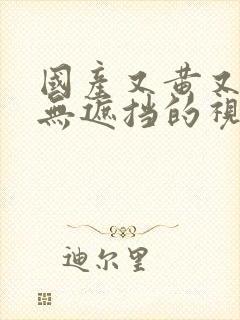 國產又黃又
無遮挡的視
迪尔里